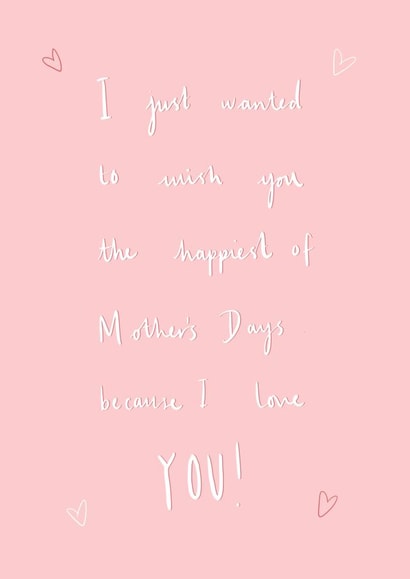 I just wanted
to wish you
the happiest of
Mother's Days
because I love
YOU!